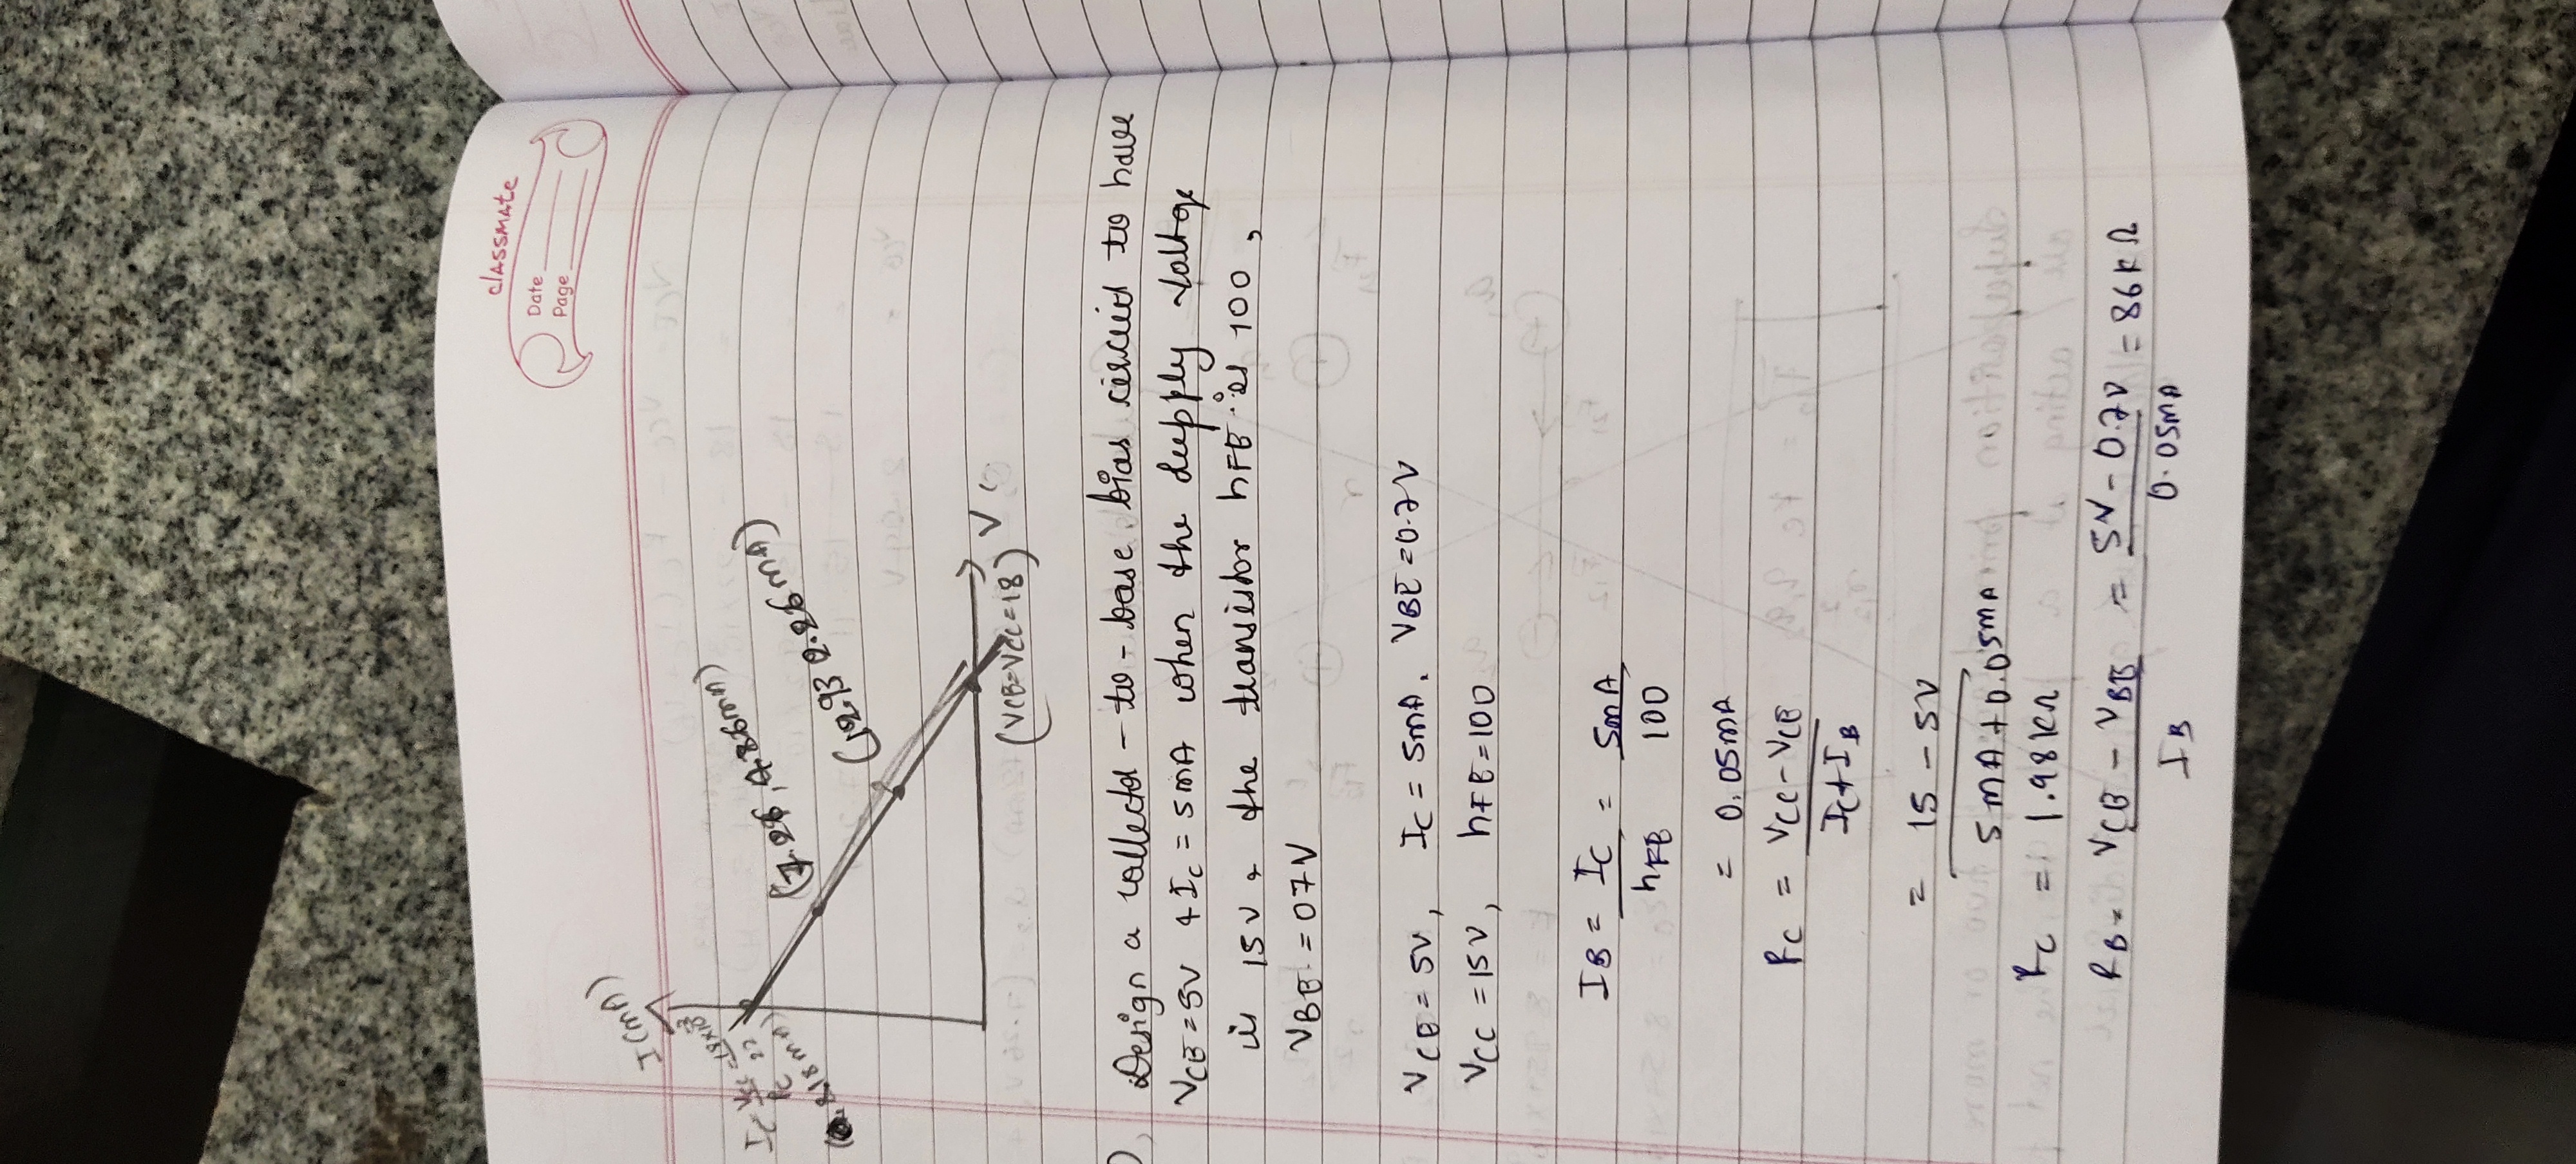 classmate
Date
Page
I (mA)
IC = VCC/RC = 18×10⁻³/22
8.18mA)
(7.26, 4.86mA)
(12.93 2.26mA)
V
(VCE=VCC=18)
Design a collector-to-base bias circuit to have
VCE=5V & IC = 5mA when the supply voltge
is 15V & the transistor hFE is 100,
VBE = 07V
VCE = 5V, IC = 5mA. VBE = 0.7V
VCC = 15V, hFE=100
IB = IC/hFE = 5mA/100
= 0.05mA
RC = VCC-VCE/IC+IB
= 15 - 5V/5mA+0.05mA
RC = 1.98KΩ
RB = VCE - VBE/IB = 5V - 0.7V/0.05mA = 86KΩ